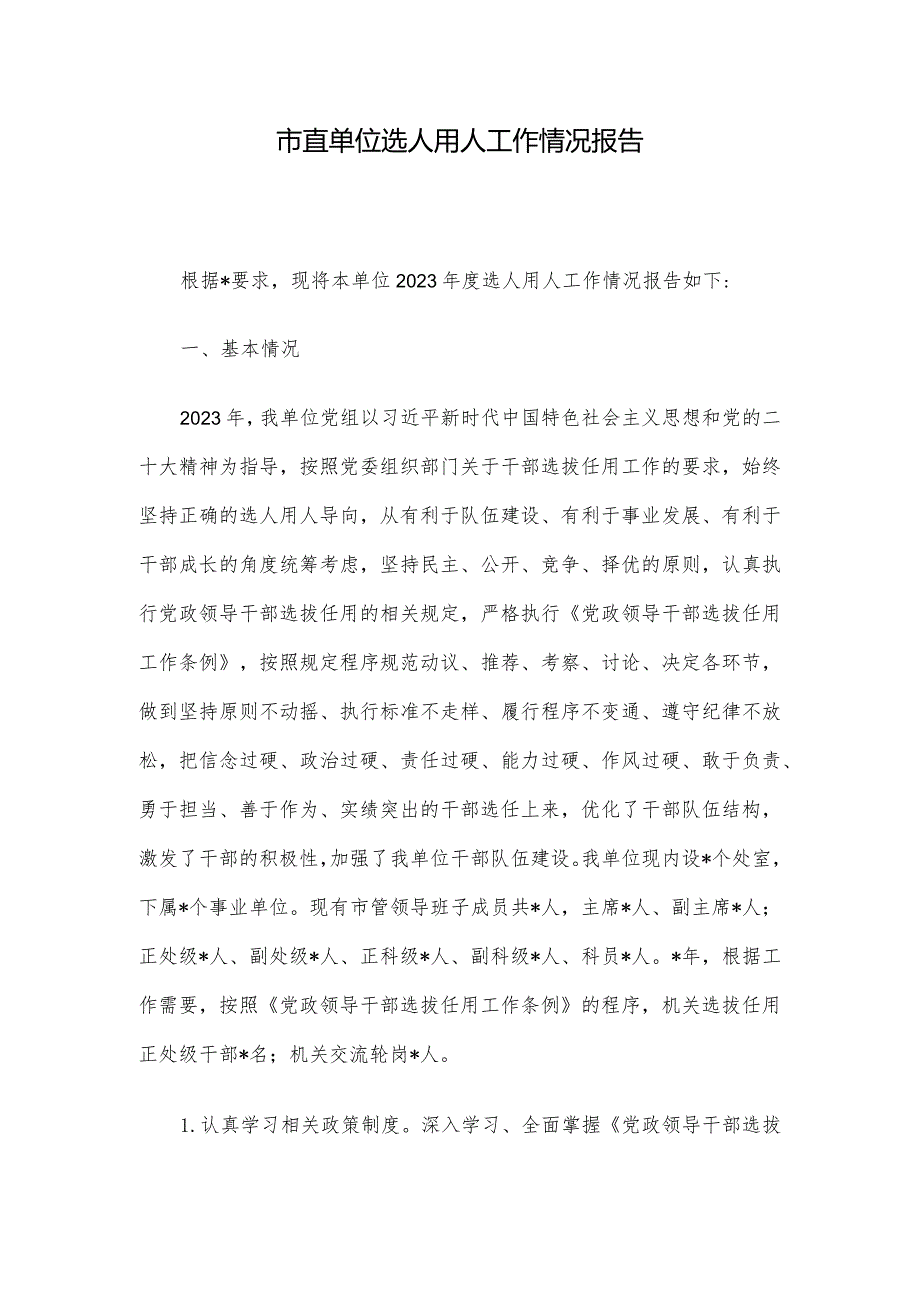 市直单位选人用人工作情况报告
根据*要求，现将本单位 2023 年度选人用人工作情况报告如下:
一、基本情况
2023 年，我单位党组以习近平新时代中国特色社会主义思想和党的二
十大精神为指导，按照党委组织部门关于干部选拔任用工作的要求，始终
坚持正确的选人用人导向，从有利于队伍建设、有利于事业发展、有利于
干部成长的角度统筹考虑，坚持民主、公开、竞争、择优的原则，认真执
行党政领导干部选拔任用的相关规定，严格执行《党政领导干部选拔任用
工作条例》，按照规定程序规范动议、推荐、考察、讨论、决定各环节，
做到坚持原则不动摇、执行标准不走样、履行程序不变通、遵守纪律不放
松，把信念过硬、政治过硬、责任过硬、能力过硬、作风过硬、敢于负责、
勇于担当、善于作为、实绩突出的干部选任上来，优化了干部队伍结构，
激发了干部的积极性，加强了我单位干部队伍建设。我单位现内设*个处室，
下属*个事业单位。现有市管领导班子成员共*人，主席*人、副主席*人；
正处级*人、副处级*人、正科级*人、副科级*人、科员*人。*年，根据工
作需要，按照《党政领导干部选拔任用工作条例》的程序，机关选拔任用
正处级干部*名；机关交流轮岗*人。
1.认真学习相关政策制度。深入学习、全面掌握《党政领导干部选拔